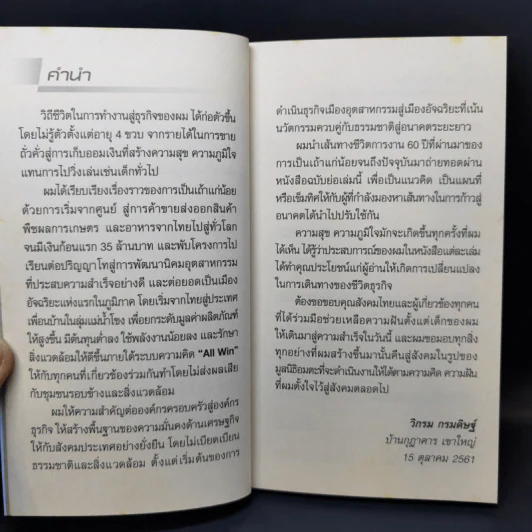 คำนำ
วิถีชีวิตในการทำงานสู่ธุรกิจของผม ได้ก่อตัวขึ้น
โดยไม่รู้ตัวตั้งแต่อายุ 4 ขวบ จากรายได้ในการขาย
ถั่วคั่วสู่การเก็บออมเงินที่สร้างความสุข ความภูมิใจ
แทนการไปวิ่งเล่นเช่นเด็กทั่วไป
ผมได้เรียบเรียงเรื่องราวของการเป็นเถ้าแก่น้อย
ด้วยการเริ่มจากศูนย์ สู่การค้าขายส่งออกสินค้า
พืชผลการเกษตร และอาหารจากไทยไปสู่ทั่วโลก
จนมีเงินก้อนแรก 35 ล้านบาท และพับโครงการไป
เรียนต่อปริญญาโทสู่การพัฒนานิคมอุตสาหกรรม
ที่ประสบความสำเร็จอย่างดี และต่อยอดเป็นเมือง
อัจฉริยะแห่งแรกในภูมิภาค โดยเริ่มจากไทยสู่ประเทศ
เพื่อนบ้านในลุ่มแม่น้ำโขง เพื่อยกระดับมูลค่าผลิตภัณฑ์
ให้สูงขึ้น มีต้นทุนต่ำลง ใช้พลังงานน้อยลง และรักษา
สิ่งแวดล้อมให้ดีขึ้นภายใต้ระบบความคิด “All Win”
ให้กับทุกคนที่เกี่ยวข้องร่วมกันทำโดยไม่ส่งผลเสีย
กับชุมชนรอบข้างและสิ่งแวดล้อม
ผมให้ความสำคัญต่อองค์กรครอบครัวสู่องค์กร
ธุรกิจ ให้สร้างพื้นฐานของความมั่นคงด้านเศรษฐกิจ
ให้กับสังคมประเทศอย่างยั่งยืน โดยไม่เบียดเบียน
ธรรมชาติและสิ่งแวดล้อม ตั้งแต่เริ่มต้นของการ
ดำเนินธุรกิจเมืองอุตสาหกรรมสู่เมืองอัจฉริยะที่เน้น
นวัตกรรมควบคู่กับธรรมชาติสู่อนาคตระยะยาว
ผมนำเส้นทางชีวิตการงาน 60 ปีที่ผ่านมาของ
การเป็นเถ้าแก่น้อยจนถึงปัจจุบันมาถ่ายทอดผ่าน
หนังสือฉบับย่อเล่มนี้ เพื่อเป็นแนวคิด เป็นแผนที่
หรือเข็มทิศให้กับผู้ที่กำลังมองหาเส้นทางในการก้าวสู่
อนาคตได้นำไปปรับใช้กัน
ความสุข ความภูมิใจมักจะเกิดขึ้นทุกครั้งที่ผม
ได้เห็น ได้รู้ว่าประสบการณ์ของผมในหนังสือแต่ละเล่ม
ได้ทำคุณประโยชน์แก่ผู้อ่านให้เกิดการเปลี่ยนแปลง
ในการเดินทางของชีวิตธุรกิจ
ต้องขอขอบคุณสังคมไทยและผู้เกี่ยวข้องทุกคน
ที่ได้ร่วมมือช่วยเหลือความฝันตั้งแต่เด็กของผม
ให้เดินมาสู่ความสำเร็จในวันนี้ และผมขอมอบทุกสิ่ง
ทุกอย่างที่ผมสร้างขึ้นมานั้นคืนสู่สังคมในรูปของ
มูลนิธิอมตะที่จะดำเนินงานให้ได้ตามความคิด ความฝัน
ที่ผมตั้งใจไว้สู่สังคมตลอดไป
วิกรม กรมดิษฐ์
บ้านกูฎาคาร เขาใหญ่
15 ตุลาคม 2561